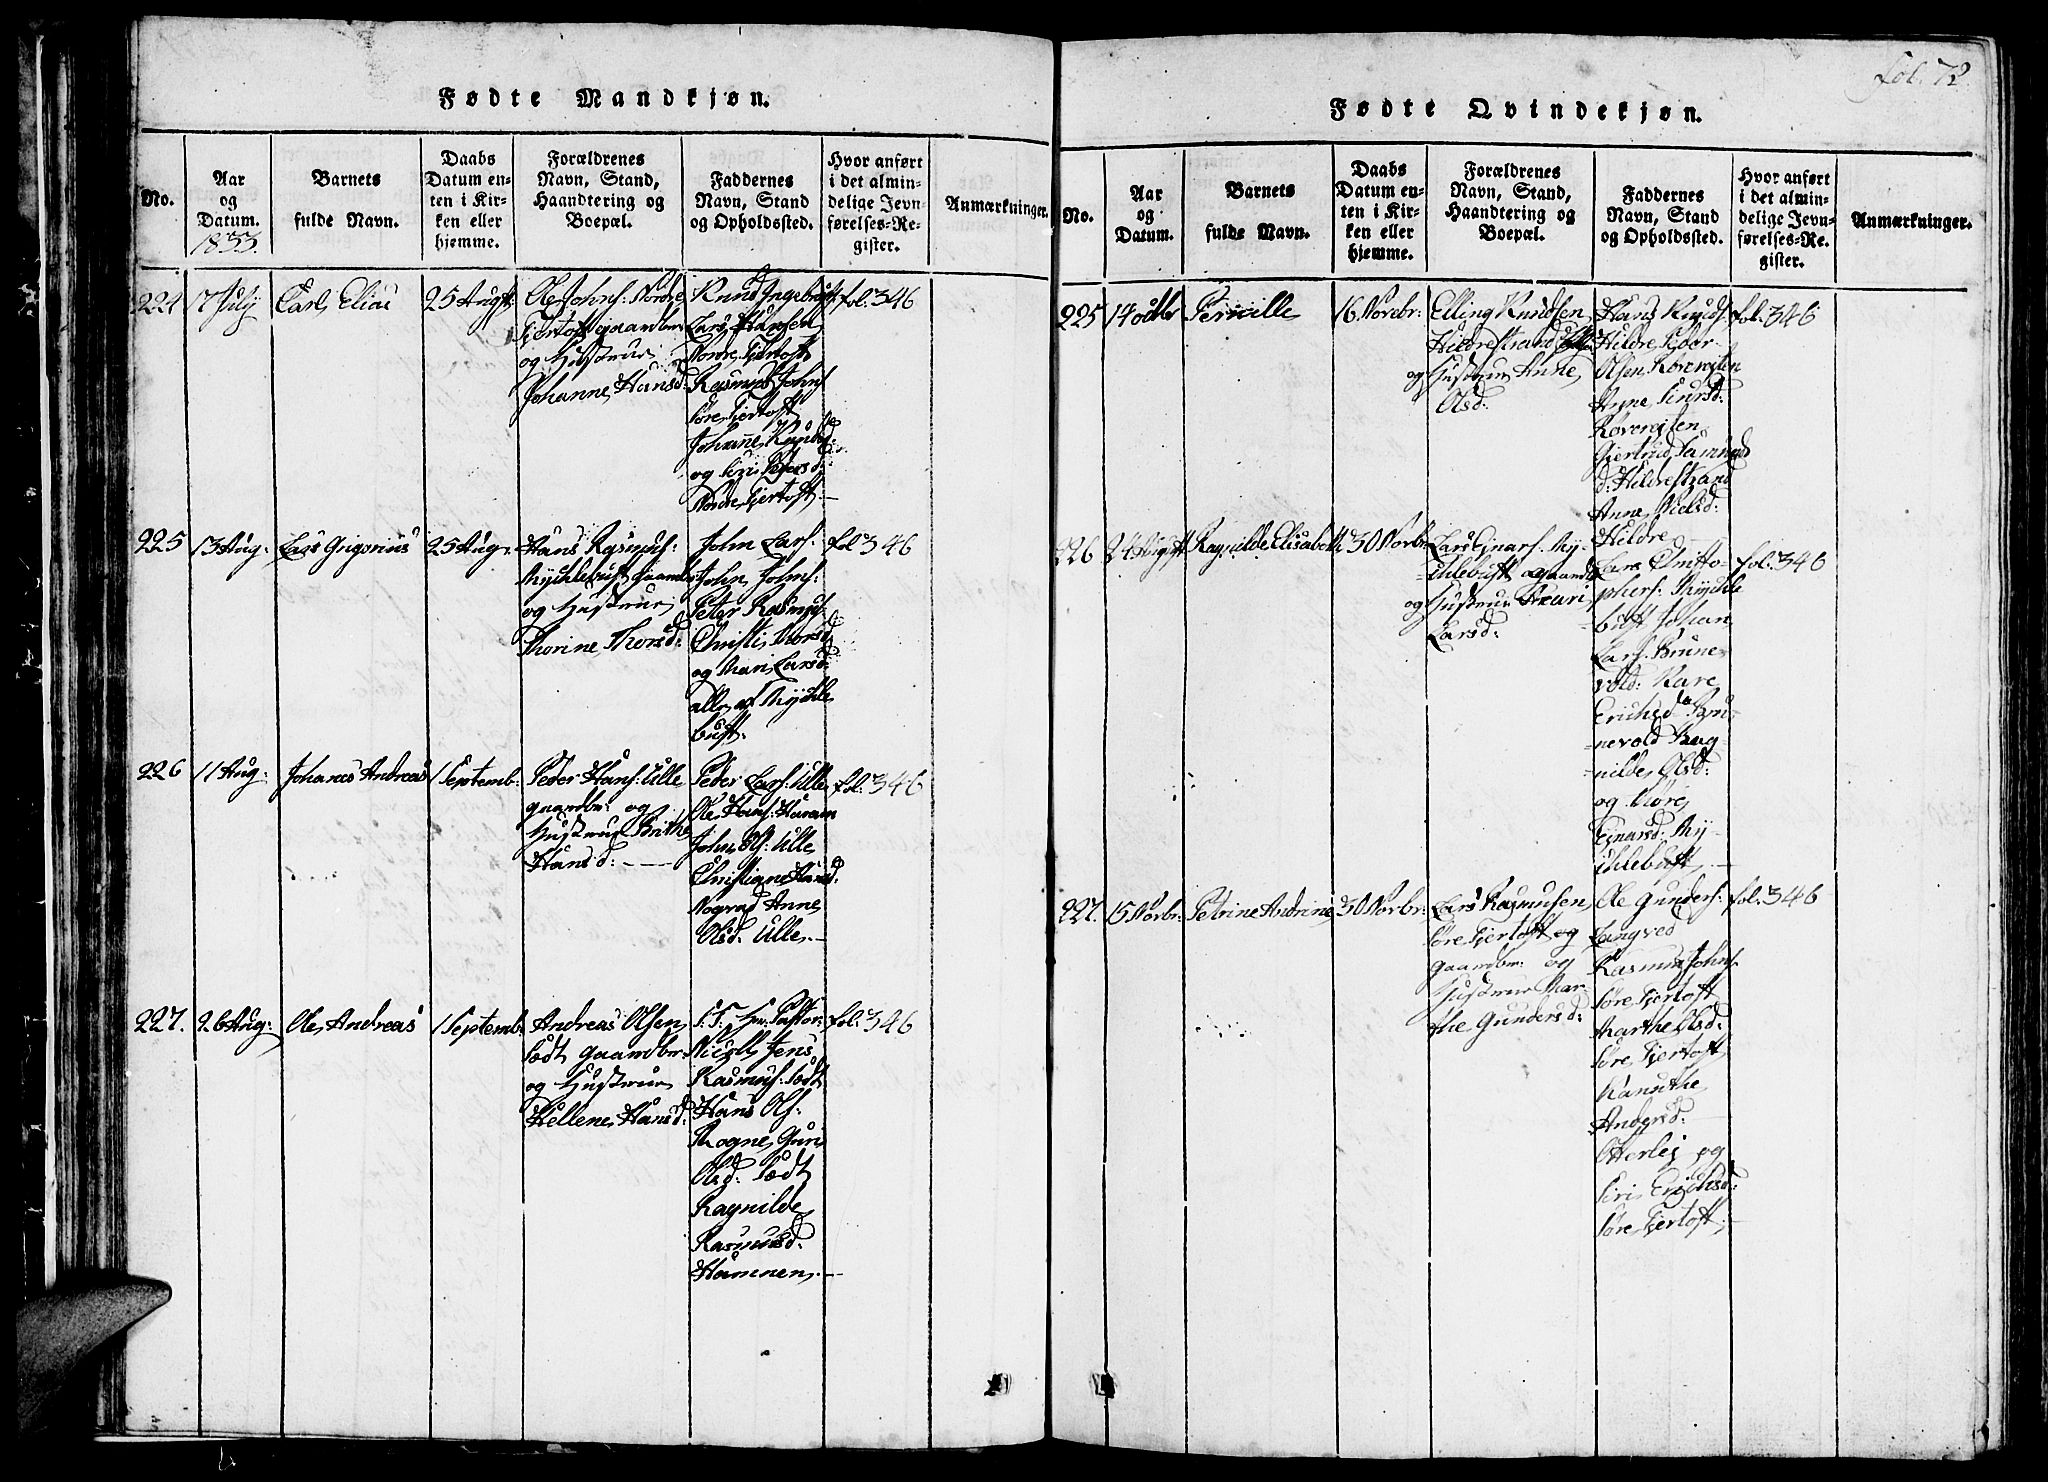 fol. 72.
Fødte Mandkjøn.
No.
Aar
og
Datum.
1833.
Barnets
fulde Navn.
Daabs
Datum en-
ten i Kir-
ken eller
hjemme.
Forældrenes
Navn, Stand,
Haandtering og
Boepæl.
Faddernes
Navn, Stand
og Opholdssted.
Hvor anført
i det almin-
delige Jevn-
førelses-Re-
gister.
Anmærkninger.
224
17 July
Carl Elias
25 Augst:
Ole Johns: Nordre
Fjertoft gaardbr
og Hustrue
Johanne Hansd:
Knud Ingebrigts:
Lars Hansen
Nordre Fjertoft
Rasmus Johns
Søre Fjertoft
Johanne Knudsd:
og Siri Pedersd:
Nordre Fjertoft.
fol. 346
225
13 Aug:
Lars Grigorius
25 Aug:
Hans Rasmus:
Mychlebust Gaardbr
og Hustrue
Thorine Thorsd:
John Lars:
John Johns:
Peter Rasmus:
Christi Thorsd
og Mari Larsd:
alle af Mychle
bust.
fol 346
226
11 Aug:
Johanes Andreas
1 Septemb:
Peder Hans: Ulle
gaardbr: og
Hustrue Brithe
Hansd:
Peder Lars: Ulle
Ole Hans: Haram
John Ols: Ulle
Christiane Hansd:
Rogvad Anne
Olsd: Ulle.
fol: 346
227.
26 Aug:
Ole Andreas
1 Septemb:
Andreas Olsen
Sædt gaardbr:
og Hustrue
Hellene Hansd:
S. T. Hr. Pastor
Nicoll Jens
Rasmus: Sædt
Hans Ols:
Rogne Guri
Olsd: Sædt
Ragnilde
Rasmusd:
Hamnen.
fol: 346
Fødte Qvindekjøn.
No.
Aar
og
Datum.
Barnets
fulde Navn.
Daabs
Datum en-
ten i Kir-
ken eller
hjemme.
Forældrenes
Navn, Stand,
Haandtering og
Boepæl.
Faddernes
Navn, Stand
og Opholdssted.
Hvor anført
i det almin-
delige Jevn-
førelses-Re-
gister.
Anmærkninger.
225
14 Octbr
Pernille
16 Novebr:
Elling Knudsen
Hildrestrand
og Hustrue Anne
Olsd:
Hans Knuds:
Hildre Peder
Olsen Røvereiten
Anne Siursd:
Røvereiten
Giertrud Samunds
d: Hildrestrand
Anne Nielsd:
Hildre
fol. 346
226
24 August
Ragnilde Elisabeth
30 Novbr
Lars Ejnars: My-
chlebust gaardbr
og Hustrue Mari
Larsd:
Lars Christo-
phers: Mychle
bust Johan
Lars: Brune-
vold: Kare
Erichsd Bru-
nevold Rag-
nilde Olsd:
og Møre
Ejnarsd: My-
chlebust
fol. 346
227.
15 Novbr:
Petrine Andrine
30 Novbr:
Lars Rasmusen
Søre Fjertoft og
gaardbr: og
Hustrue Mar-
the Gundersd:
Ole Gunders:
Langved
Rasmus Johns.
Søre Fjertoft
Marthe Olsd:
Søre Fjertoft
Kanuthe
Andersd:
Otterlej og
Siri Erichsd:
Søre Fjertoft.
fol. 346